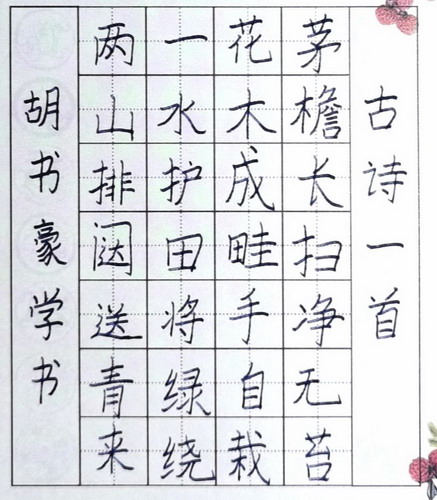 古诗一首
茅檐长扫净无苔
花木成畦手自栽
一水护田将绿绕
两山排闼送青来
胡书豪学书